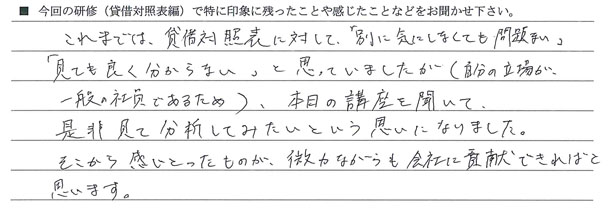 ■ 今回の研修（貸借対照表編）で特に印象に残ったことや感じたことなどをお聞かせ下さい。
これまでは、貸借対照表に対して、「別に気にしなくても問題ない」
「見ても良く分からない」と思っていましたが（自分の立場が、
一般の社員であるため）、本日の講座を聞いて、
是非見て分析してみたいという思いになりました。
そこから感いとったものが、微力ながらも会社に貢献できればと
思います。